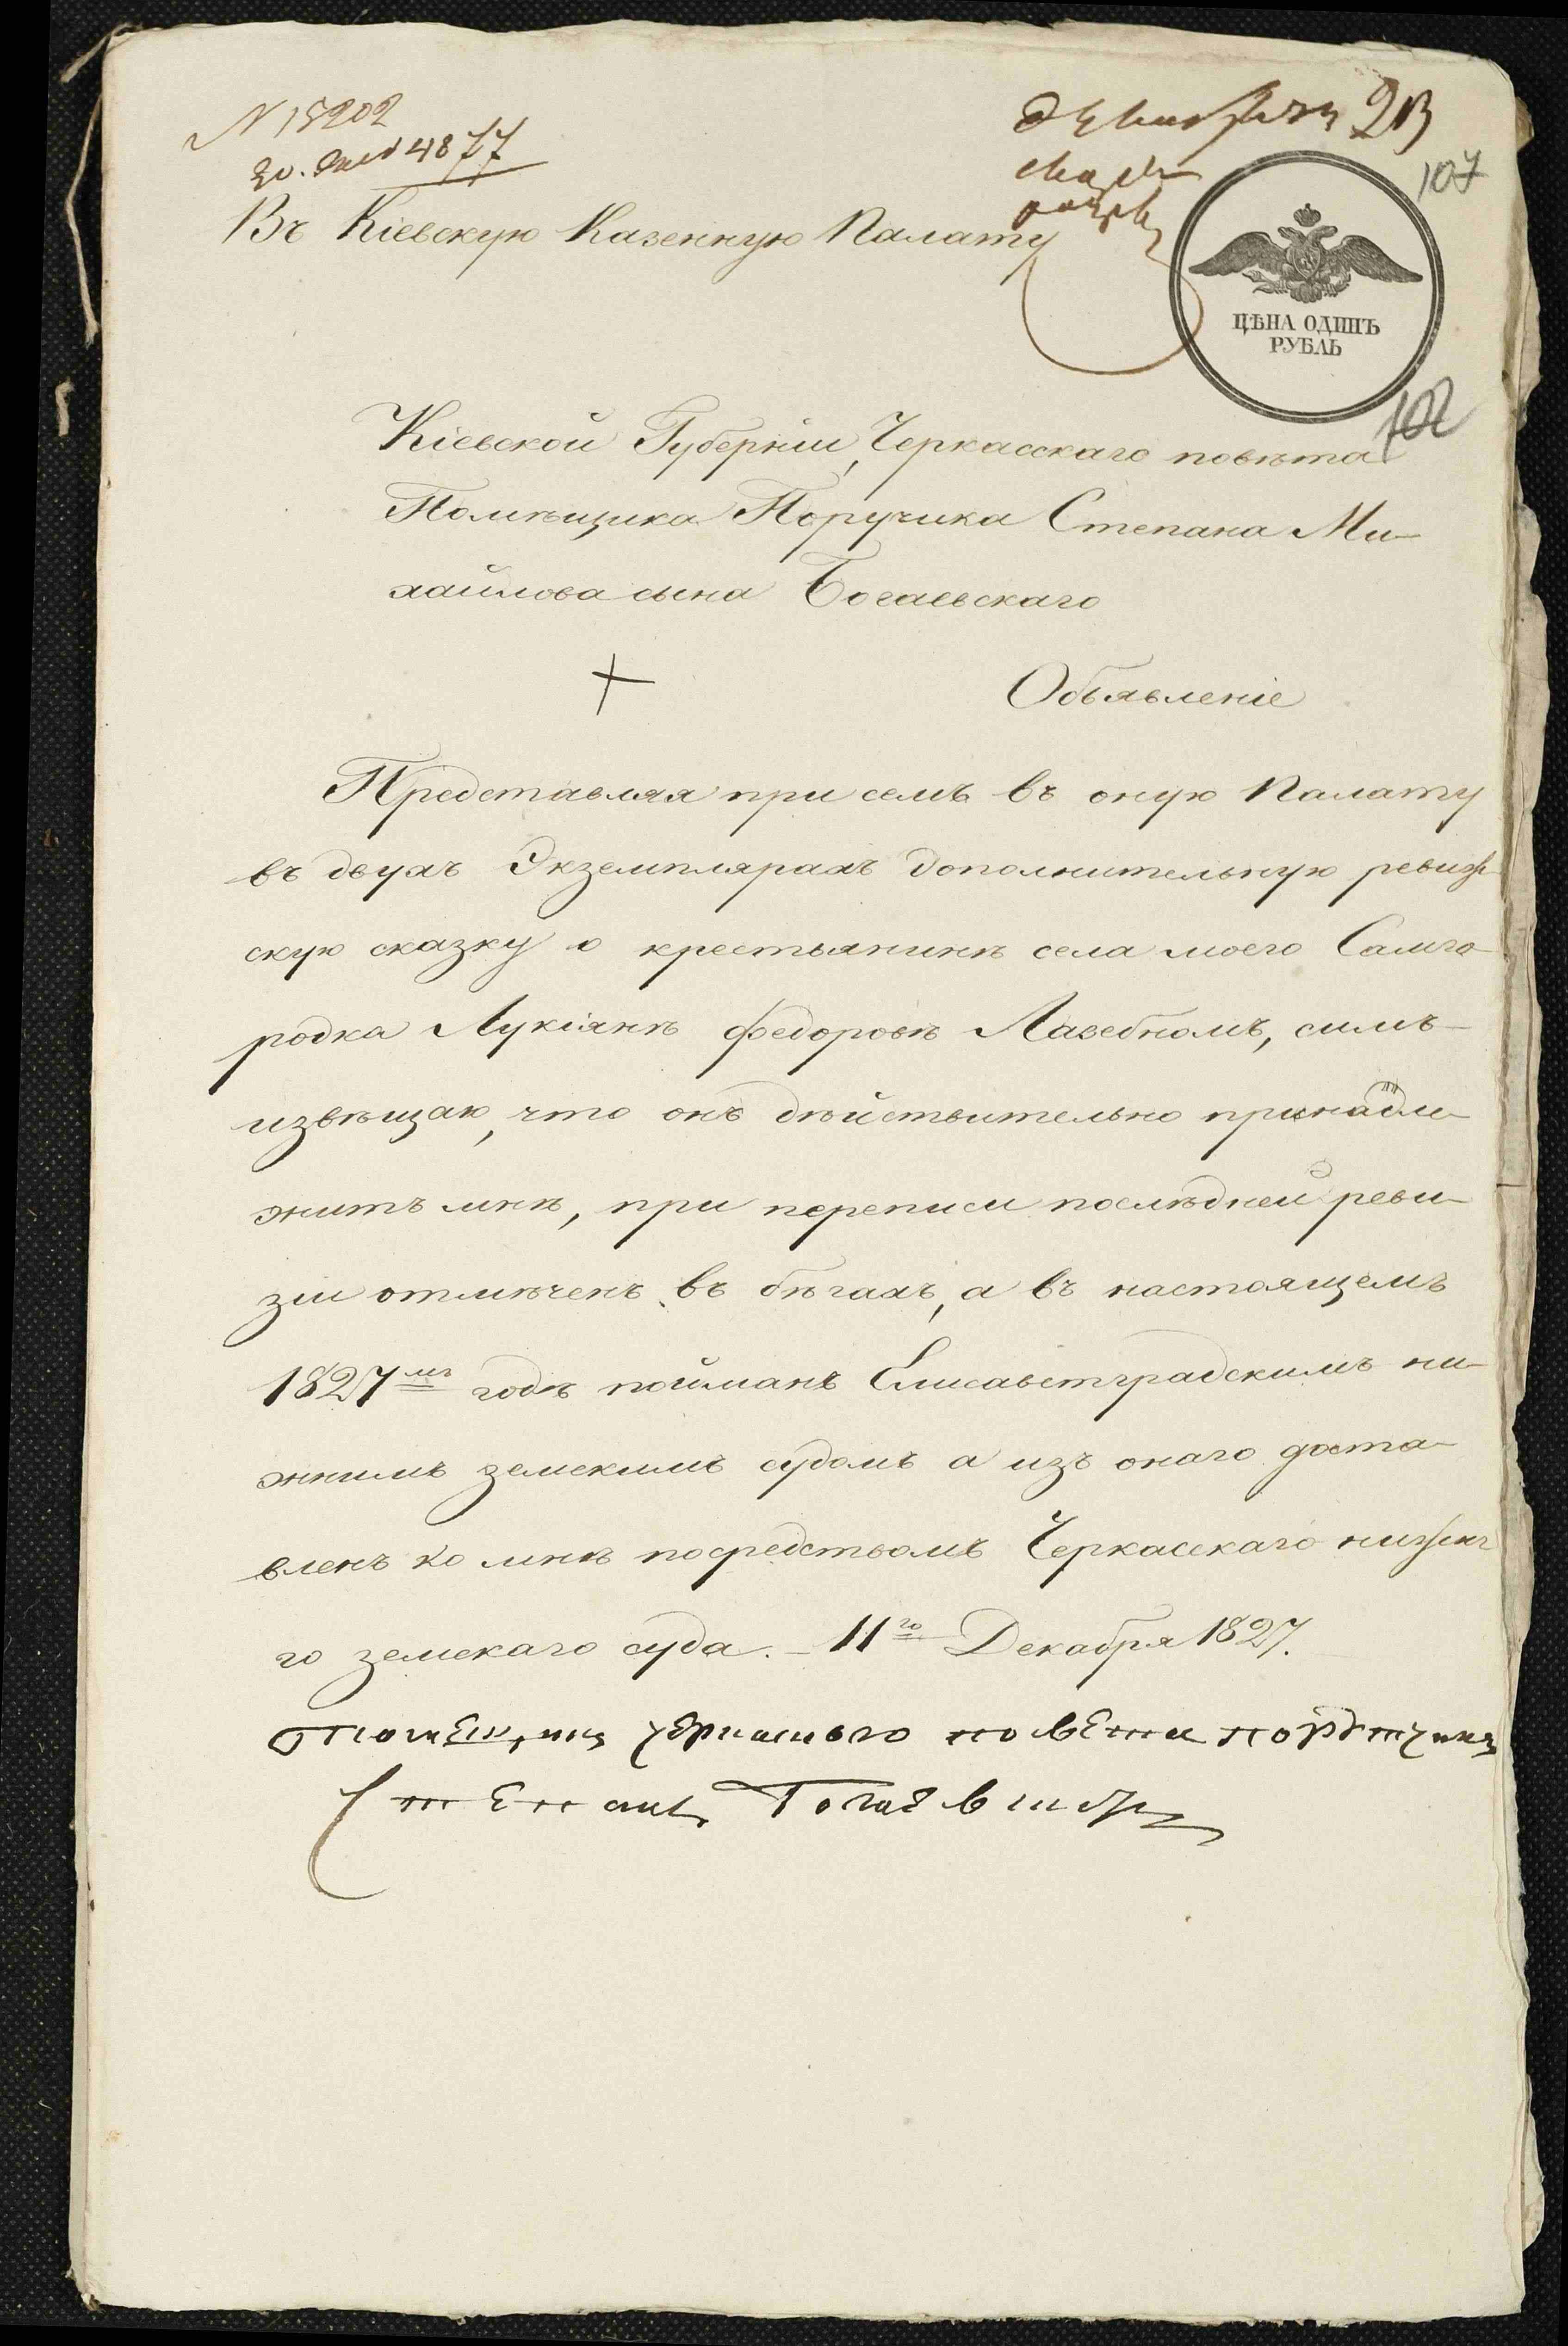 N 15202
107
Въ Кіевскую Казенную Палату
ЦѢНА ОДИНЪ
РУБЛЬ
102
Кіевской Губерніи, Черкасскаго повѣта
Помѣщика Поручика Степана Ми-
хайлова сына Богаевскаго
Объявленіе
Представляя при семъ въ оную Палату
въ двухъ Экземплярахъ дополнительную ревиж
скую сказку о крестьянинѣ села моего Самго-
родка Лукіянѣ Федоровѣ Лазебномъ, симъ-
извѣщаю, что онъ дѣйствительно принадле-
житъ мнѣ, при переписи послѣдней реви-
зіи отмѣченъ въ бѣгахъ, а въ настоящемъ
1827мъ годѣ пойманъ Елисаветградскимъ ни-
жнимъ земскимъ судомъ а изъ онаго доста-
вленъ ко мнѣ посредствомъ Черкасскаго нижня
го земскаго суда. - 11го Декабря 1827.
повета
Степанъ